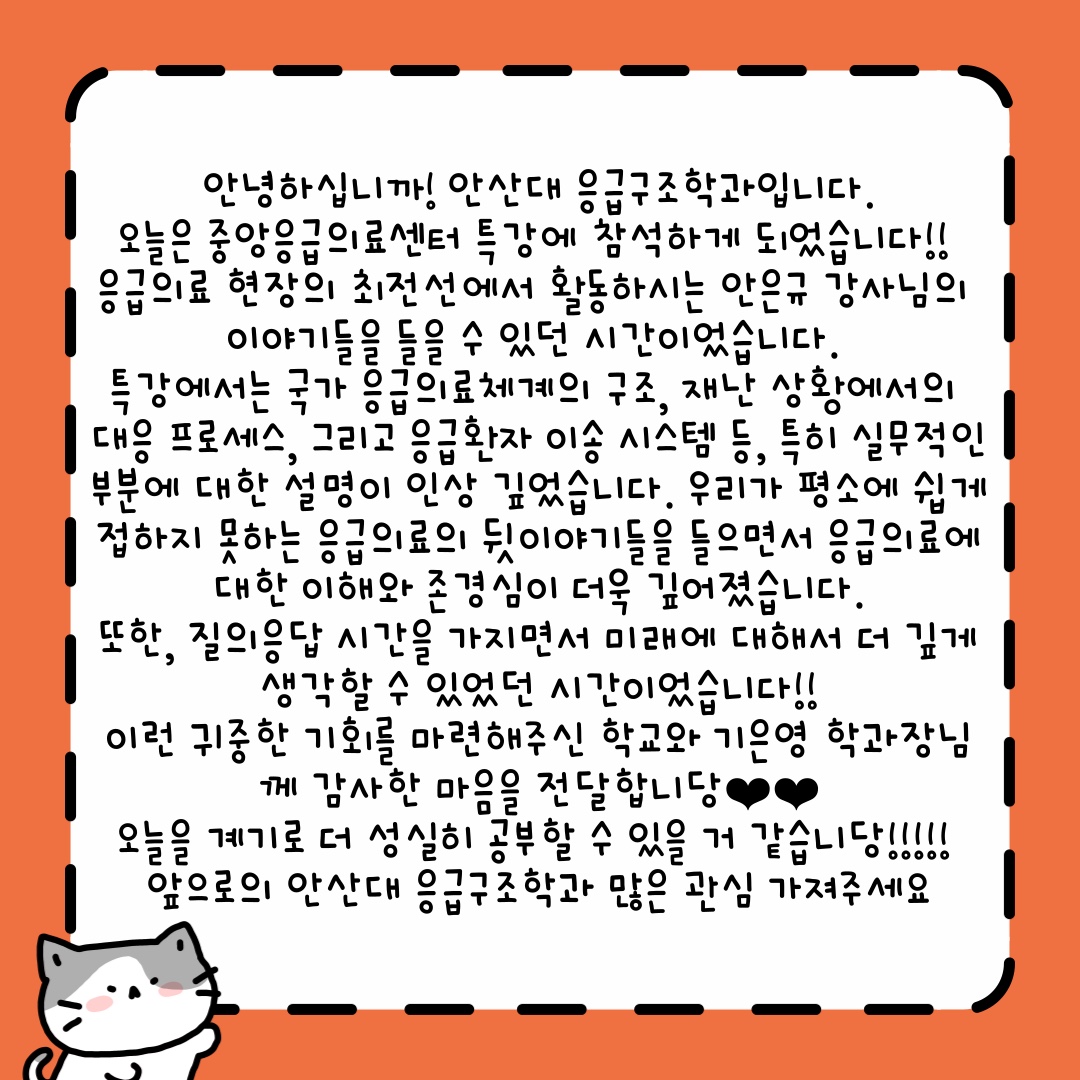 안녕하십니까! 안산대 응급구조학과입니다.
오늘은 중앙응급의료센터 특강에 참석하게 되었습니다!!
응급의료 현장의 최전선에서 활동하시는 안은규 강사님의
이야기들을 들을 수 있던 시간이었습니다.
특강에서는 국가 응급의료체계의 구조, 재난 상황에서의
대응 프로세스, 그리고 응급환자 이송 시스템 등, 특히 실무적인
부분에 대한 설명이 인상 깊었습니다. 우리가 평소에 쉽게
접하지 못하는 응급의료의 뒷이야기들을 들으면서 응급의료에
대한 이해와 존경심이 더욱 깊어졌습니다.
또한, 질의응답 시간을 가지면서 미래에 대해서 더 깊게
생각할 수 있었던 시간이었습니다!!
이런 귀중한 기회를 마련해주신 학교와 기은영 학과장님
께 감사한 마음을 전달합니당❤❤
오늘을 계기로 더 성실히 공부할 수 있을 거 같습니당!!!!!
앞으로의 안산대 응급구조학과 많은 관심 가져주세요